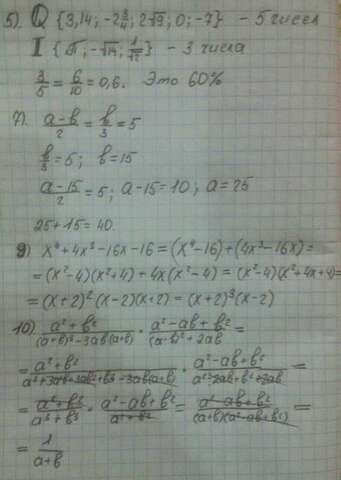 5). Q {3,14; -2 3/4; 2√9; 0; -7} - 5 чисел
I {π; -√14; 1/√2} - 3 числа
3/5 = 6/10 = 0,6. Это 60%
7). (a-b)/2 = b/3 = 5
b/3 = 5; b = 15
(a-15)/2 = 5; a-15=10; a=25
25+15=40.
9) x⁴+4x³-16x-16=(x⁴-16)+(4x³-16x)=
=(x²-4)(x²+4)+4x(x²-4)=(x²-4)(x²+4x+4)=
=(x+2)²(x-2)(x+2)=(x+2)³(x-2)
10). (a²+b²)/((a+b)³-3ab(a+b)) · (a²-ab+b²)/((a-b)²+2ab) =
= (a²+b²)/(a³+3ab+3ab²+b³-3ab(a+b)) · (a²-ab+b²)/(a²-2ab+b²+2ab) =
= (a²+b²)/(a³+b³) · (a²-ab+b²)/(a²+b²) = (a²-ab+b²)/((a+b)(a²-ab+b²)) =
= 1/(a+b)